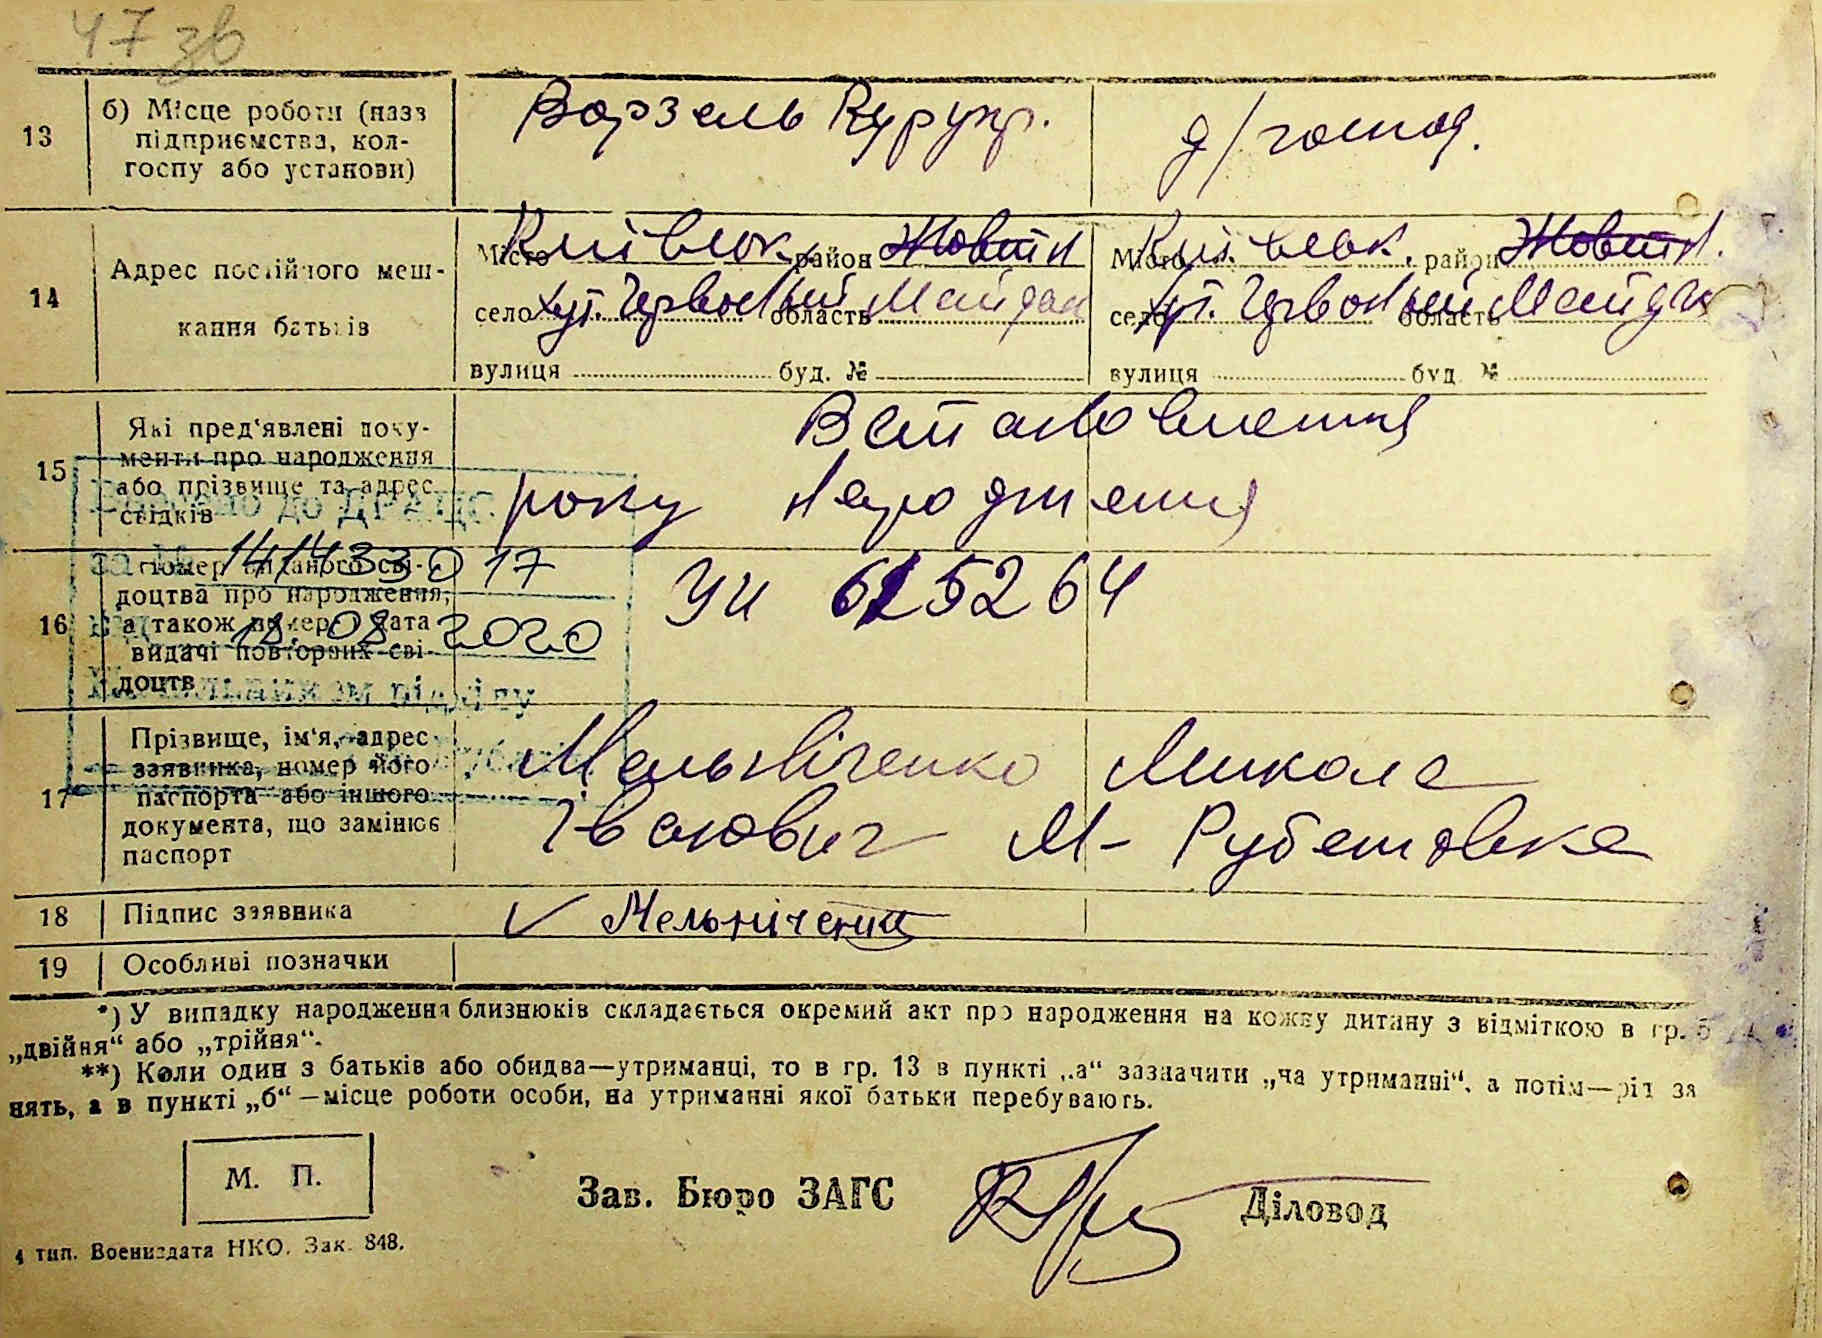 47 зв
13
б) Місце роботи (назв підприємства, колгоспу або установи)
Ворзель Курупр.
д/господ.
14
Адрес постійного мешкання батьків
Місто район Жовтн
село хут. Червоный область Майдан
вулиця буд. №
Місто район Жовтн.
село хут. Червоный область Майдан
вулиця буд. №
15
Які пред'явлені документи про народження або прізвище та адрес свідків
Встановлення
року народження
до ДРАЦС
1414330 17
18.08 2020
Начальником відділу
16
Номер виданого свідоцтва про народження, а також номер і дата видачі повторних свідоцтв
УИ 615264
17
Прізвище, ім'я, адрес заявника, номер його паспорта або іншого документа, що замінює паспорт
Мельніченко Микола
Іванович М-Рубежовка
18
Підпис заявника
Мельніченко
19
Особливі позначки
*) У випадку народження близнюків складається окремий акт про народження на кожну дитину з відміткою в гр. 5
„двійня“ або „трійня“.
**) Коли один з батьків або обидва—утриманці, то в гр. 13 в пункті „а“ зазначити „на утриманні“, а потім—рід за
нять, а в пункті „б“—місце роботи особи, на утриманні якої батьки перебувають.
М. П.
Зав. Бюро ЗАГС
Діловод
4 тип. Воениздата НКО. Зак. 848.